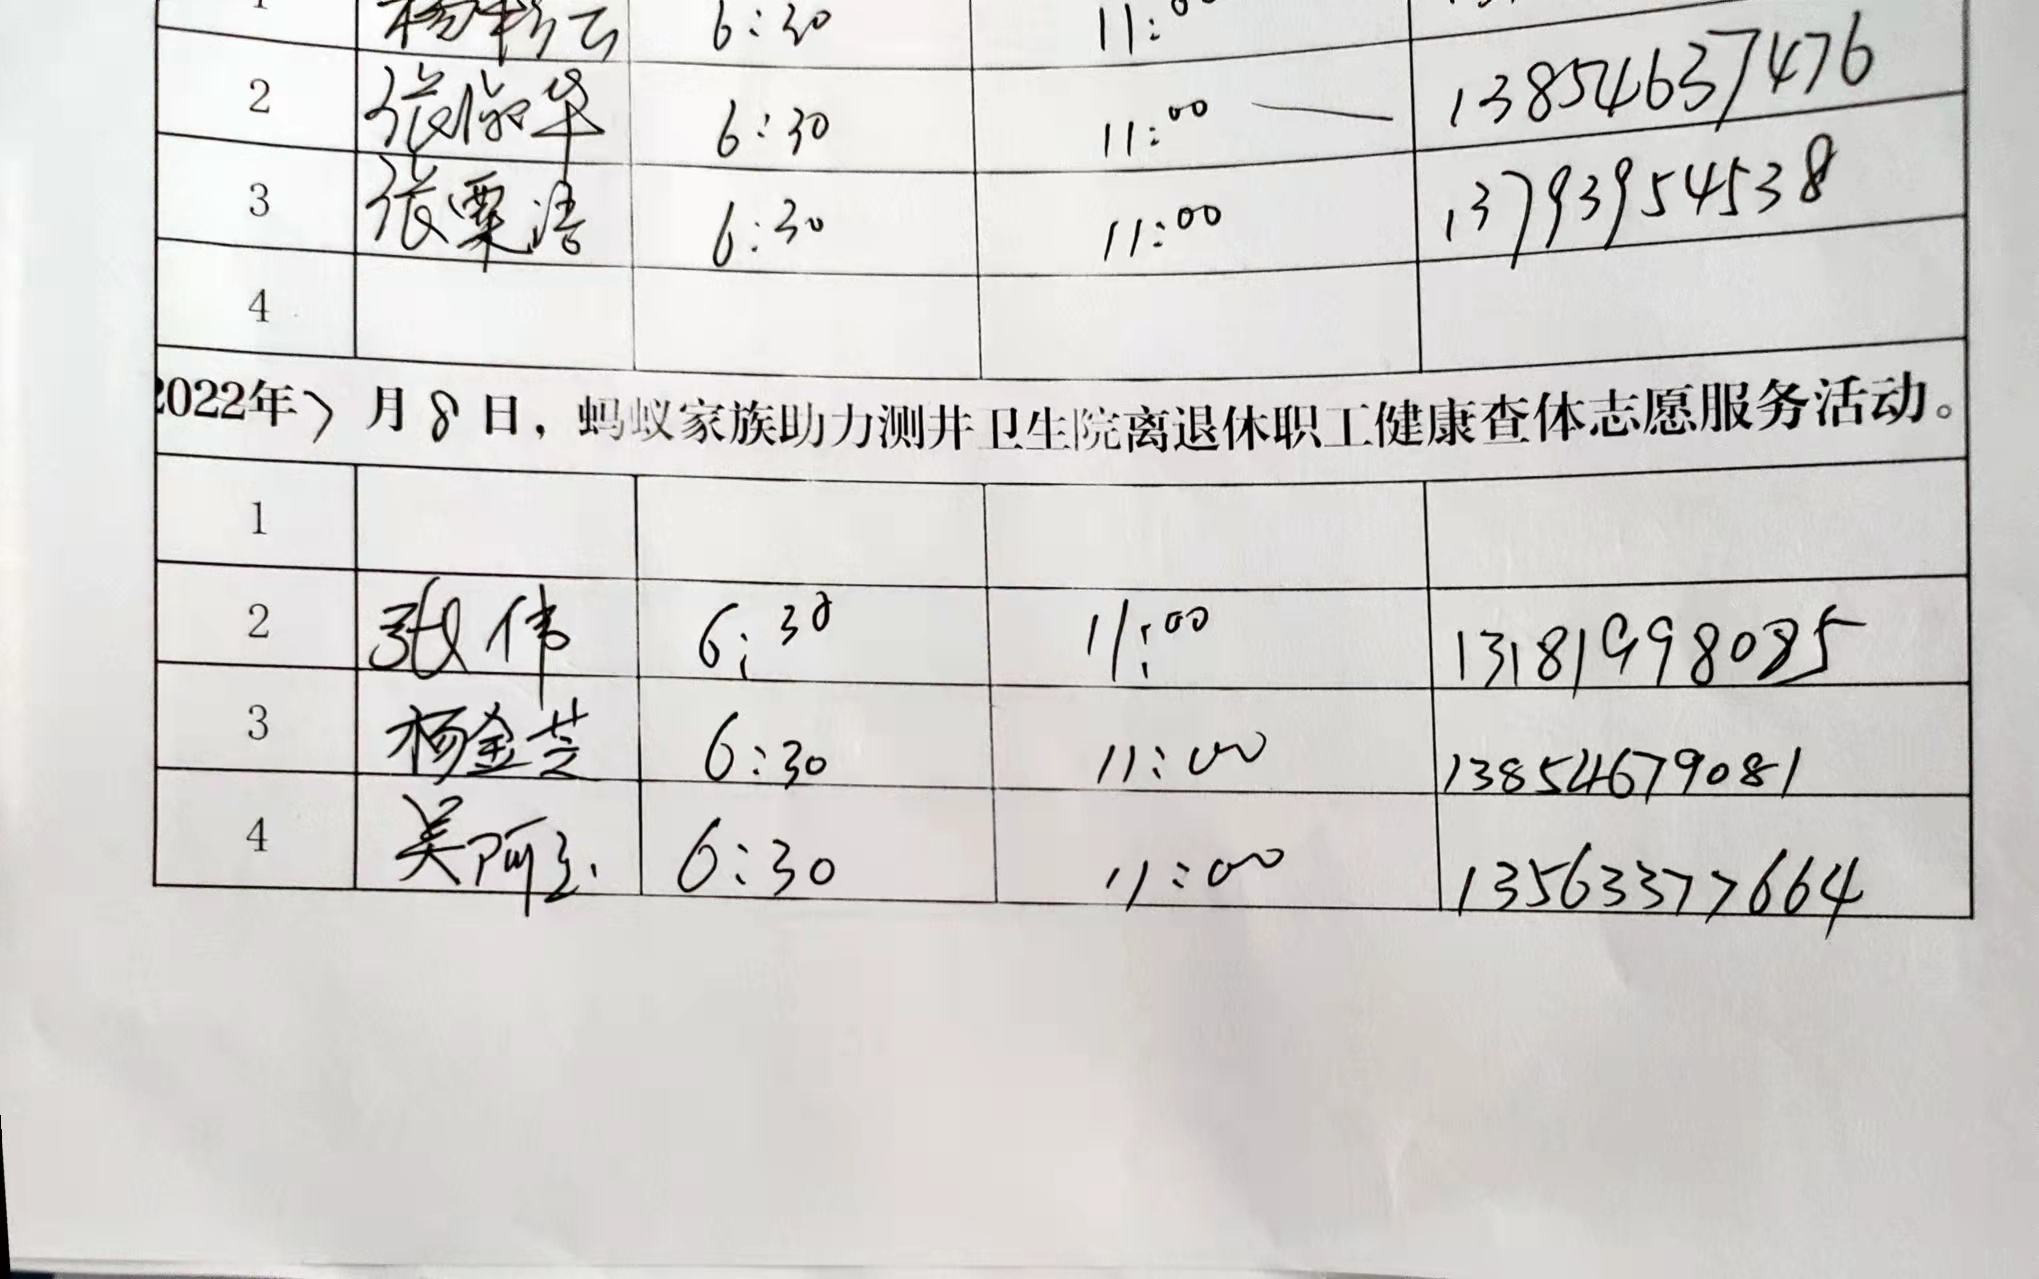 6:30
2 张淑华 6:30 11:00 13854637476
3 张栗浩 6:30 11:00 13793954538
4
2022年7月8日，蚂蚁家族助力测井卫生院离退休职工健康查体志愿服务活动。
1
2 张伟 6:30 11:00 13181998085
3 杨金芝 6:30 11:00 13854679081
4 吴阿玉 6:30 11:00 13563377664